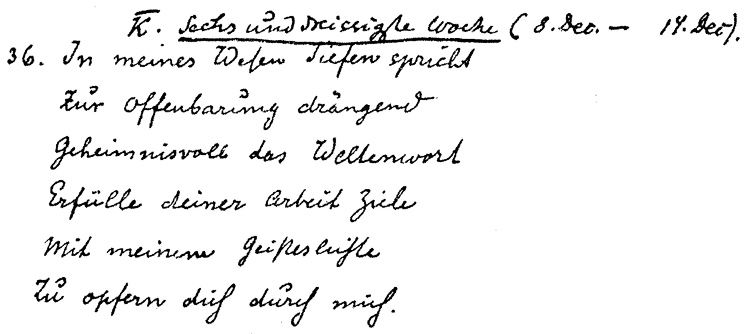 K. Sechs und dreissigste Woche (8. Dec. – 14. Dec).
36. In meines Wesen Tiefen spricht
Zur Offenbarung drängend
Geheimnisvoll das Weltenwort
Erfülle deiner Arbeit Ziele
Mit meinem Geisteslichte
Zu opfern dich durch mich.